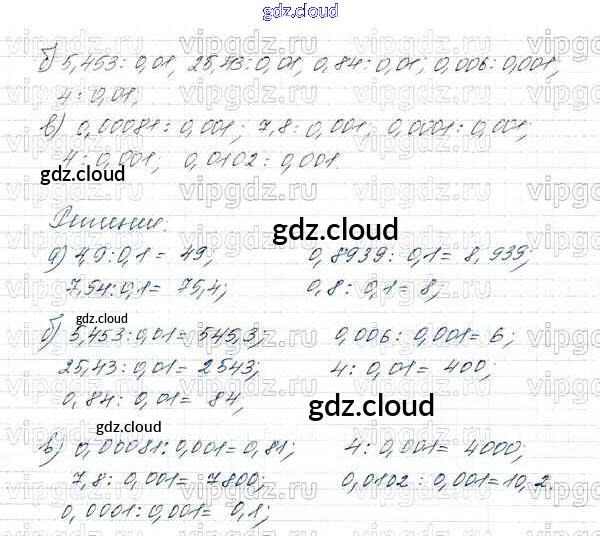 gdz.cloud
б) 5,453 : 0,01; 25,43 : 0,01; 0,84 : 0,01; 0,006 : 0,001;
4 : 0,01;
в) 0,00081 : 0,001; 7,8 : 0,001; 0,0001 : 0,001;
4 : 0,001; 0,0102 : 0,001.
gdz.cloud
Решение.
gdz.cloud
а) 4,9 : 0,1 = 49; 0,8939 : 0,1 = 8,939;
7,54 : 0,1 = 75,4; 0,8 : 0,1 = 8;
gdz.cloud
б) 5,453 : 0,01 = 545,3; 0,006 : 0,001 = 6;
25,43 : 0,01 = 2543; 4 : 0,01 = 400;
0,84 : 0,01 = 84;
gdz.cloud
gdz.cloud
в) 0,00081 : 0,001 = 0,81; 4 : 0,001 = 4000;
7,8 : 0,001 = 7800; 0,0102 : 0,001 = 10,2.
0,0001 : 0,001 = 0,1;
vipgdz.ru